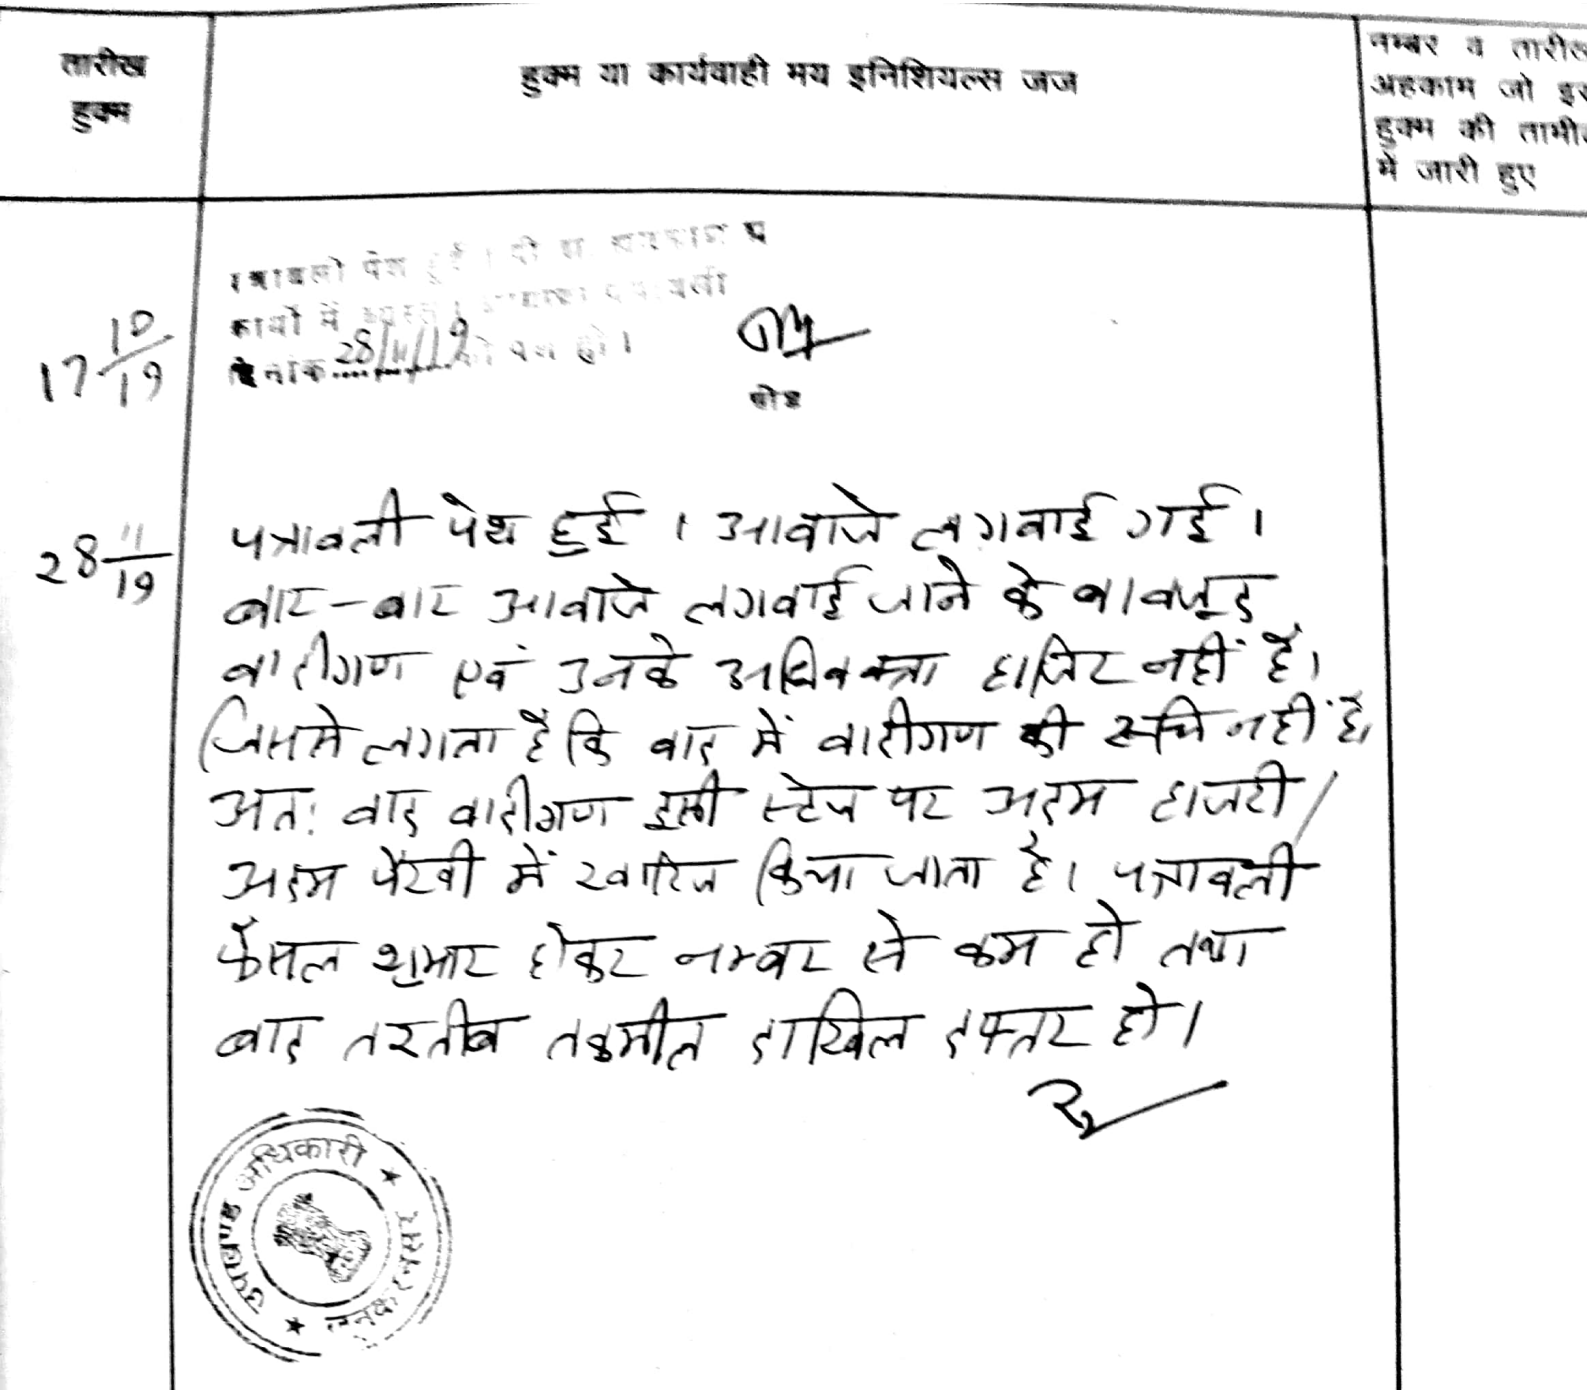 तारीख
हुक्म
हुक्म या कार्यवाही मय इनिशियल्स जज
नम्बर व तारीख
अहकाम जो इस
हुक्म की तामील
में जारी हुए
17 10/19
पेश हुई ।
कार्यो में
दिनांक 28/11/19 को पेश हो ।
28 11/19
पत्रावली पेश हुई । आवाजे लगवाई गई ।
बार-बार आवाजे लगवाई जाने के बावजूद
वादीगण एवं उनके अधिवक्ता हाजिर नहीं है।
जिससे लगता है कि वाद में वादीगण की रूचि नहीं है,
अतः वाद वादीगण इसी स्टेज पर अदम हाजरी/
अदम पैरवी में खारिज किया जाता है। पत्रावली
फैसल शुमार होकर नम्बर से कम हो तथा
बाद तरतीब तकमील दाखिल दफ्तर हो।
उपखण्ड अधिकारी
लूनकरनसर